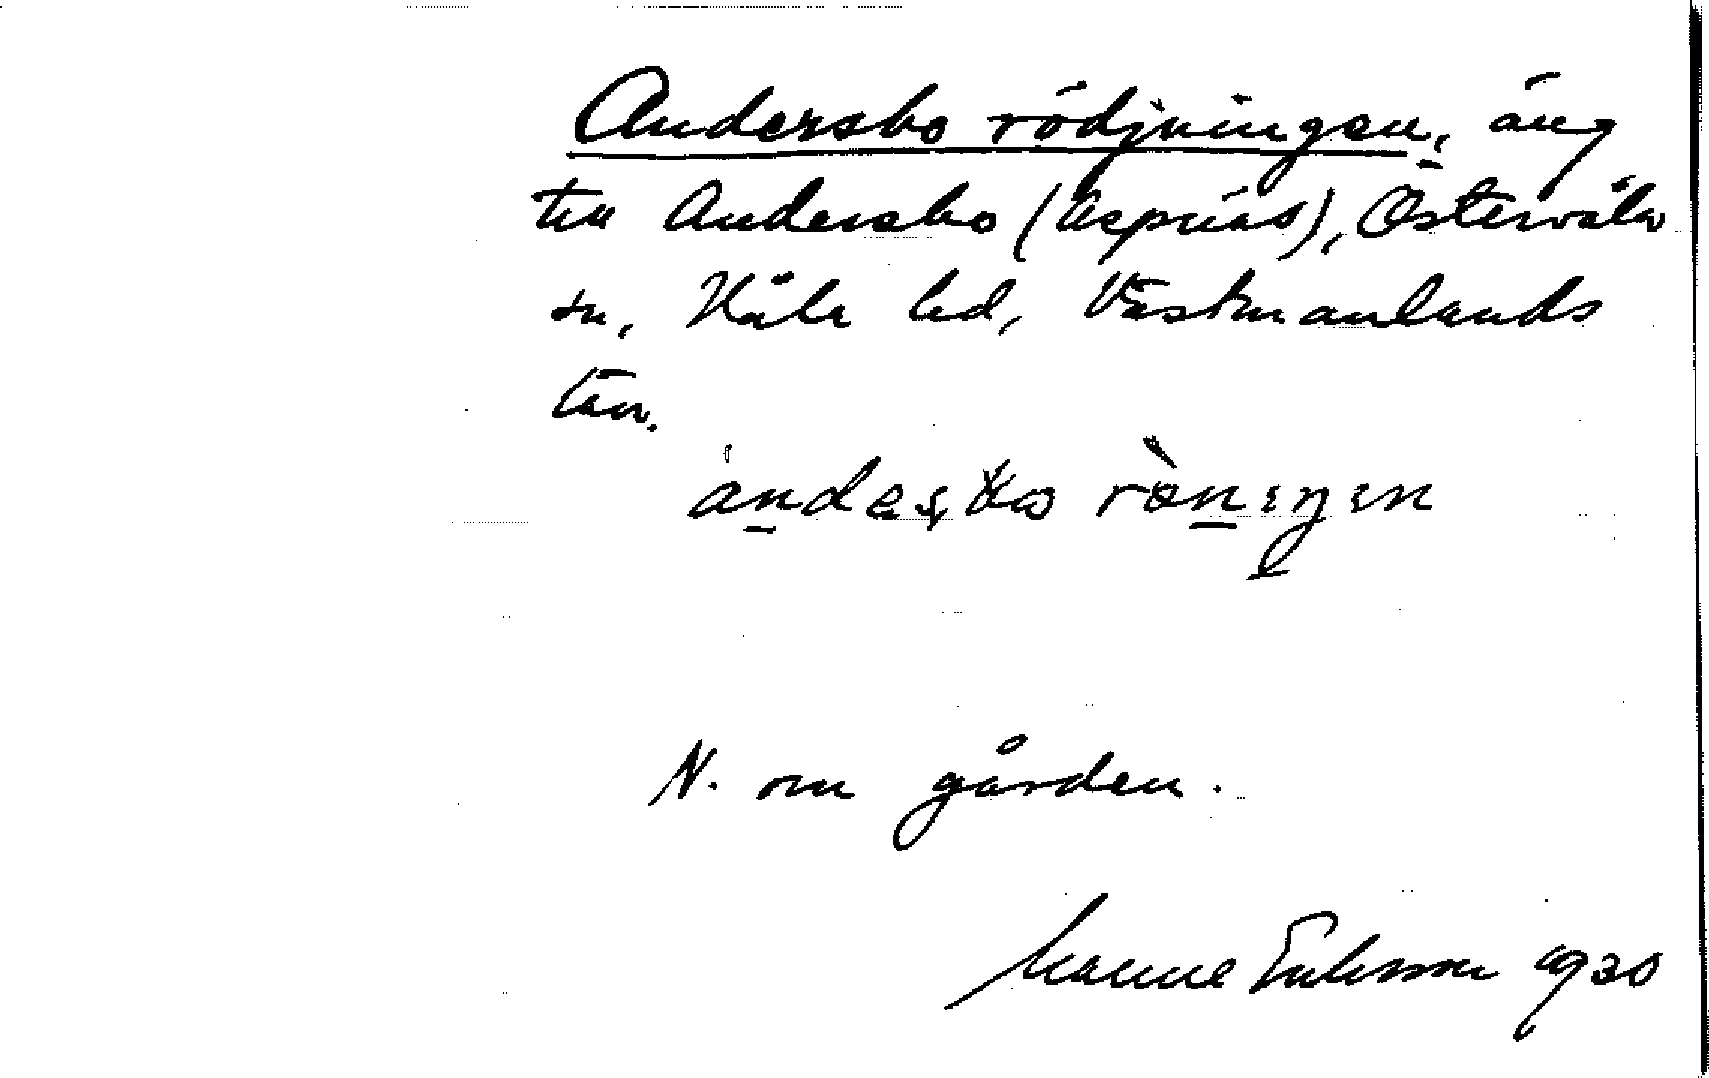 Andersbo rödjningen, äng
till Andersbo (Aspnäs), Östervåla
sn, Våla hd, Västmanlands
län.
andesbo röningen
N. om gården.
Manne Eriksson 1930